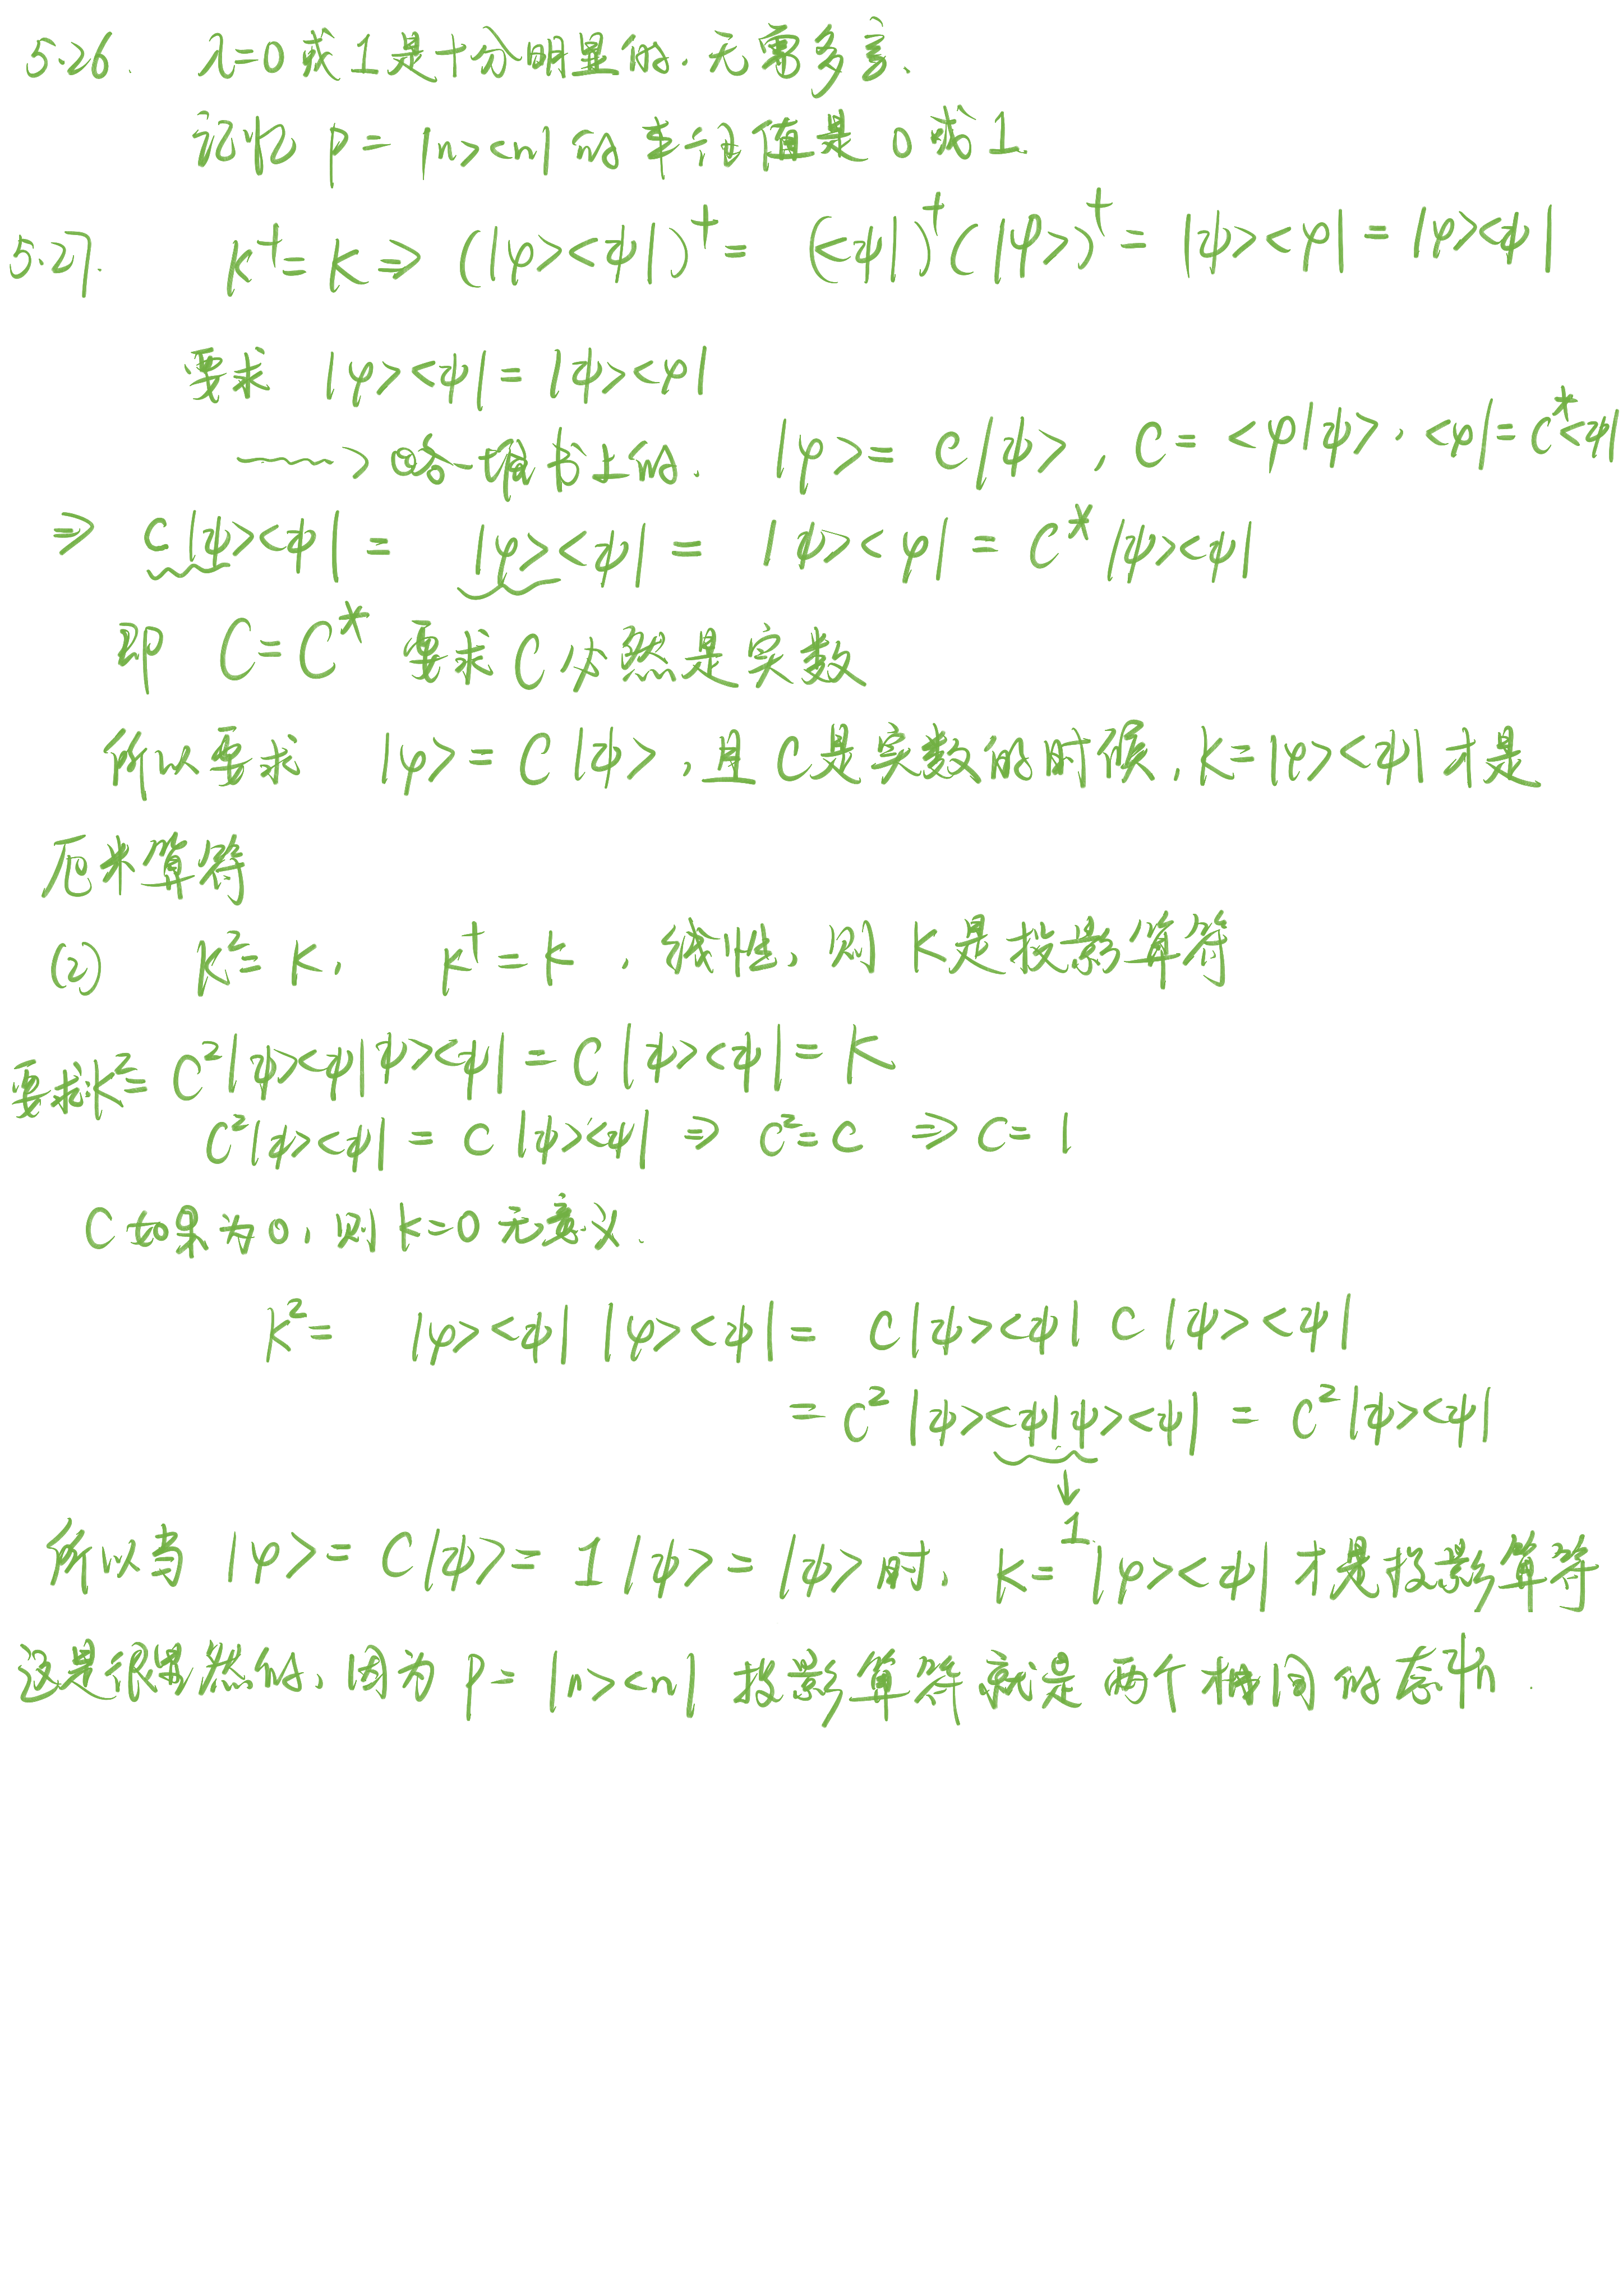 5.26. λ=0或1是十分明显的.无需多言.
记忆 P=|n><n| 的本征值是0或1.
5.27. K†=K ⇒ (|φ><ψ|)†= (<ψ|)†(|φ>)†= |ψ><φ|=|φ><ψ|
要求 |φ><ψ|=|ψ><φ|
→ 的 |φ>=c|ψ>, C=<φ|ψ>. <φ|=C*<ψ|
⇒ C|ψ><ψ| = |φ><ψ| = |ψ><φ| = C*|ψ><ψ|
即 C=C* 要求C必然是实数
所以要求 |φ>=C|ψ>,且C是实数的时候,K=|φ><ψ|才是
厄米算符
(2) K²=K, K†=K , 线性,则K是投影算符
要求K²= C²|ψ><ψ|ψ><ψ|=C|ψ><ψ|=K
C²|ψ><ψ| = C|ψ><ψ| ⇒ C²=C ⇒ C=1
C如果为0,则K=0无意义.
K²= |φ><ψ| |φ><ψ|= C|ψ><ψ| C|ψ><ψ|
=C²|ψ><ψ|ψ><ψ| = C²|ψ><ψ|
↓
1
所以当 |φ>=C|ψ>=1|ψ>=|ψ>时, K=|φ><ψ|才是投影算符
这是很显然的,因为P=|n><n| 投影算符就是两个相同的态